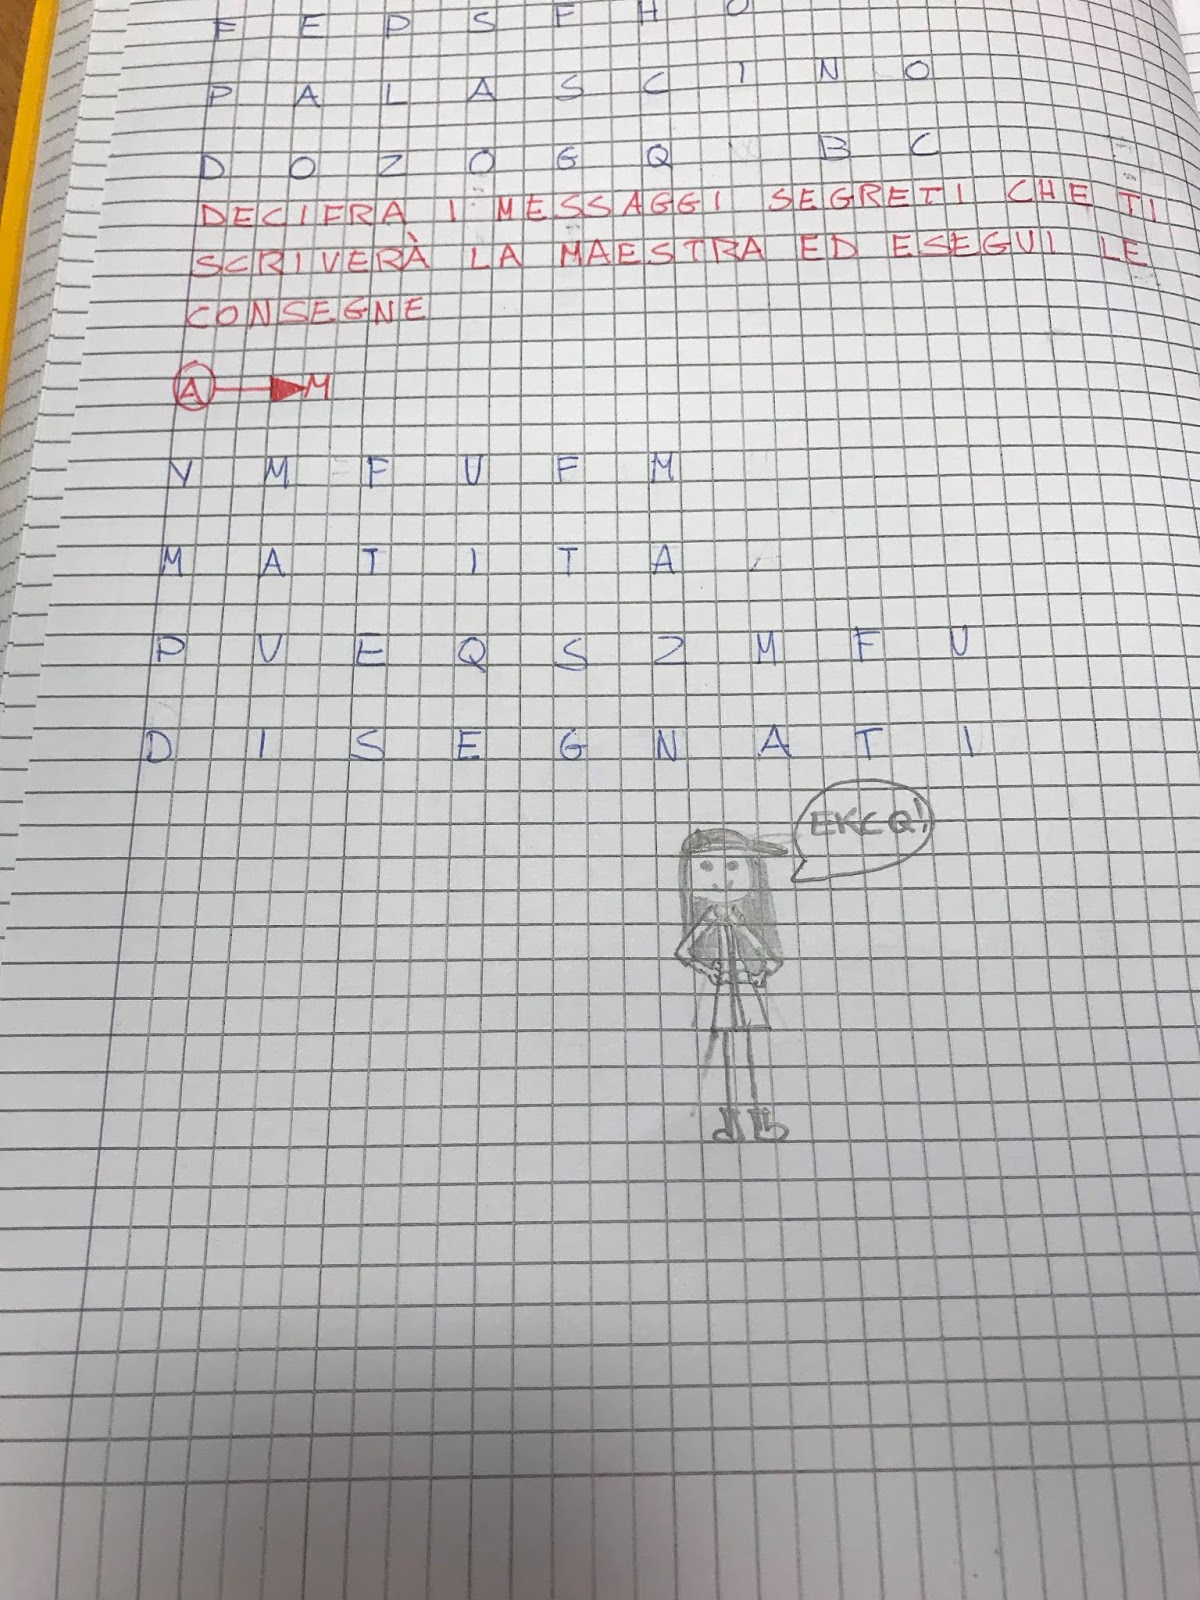 F E P S F H O
P A L A S C I N O
D O Z O G Q B C
DECIFRA I MESSAGGI SEGRETI CHE TI
SCRIVERÀ LA MAESTRA ED ESEGUI LE
CONSEGNE
A M
Y M F U F M
M A T I T A
P U E Q S Z M F U
D I S E G N A T I
EKCQ!